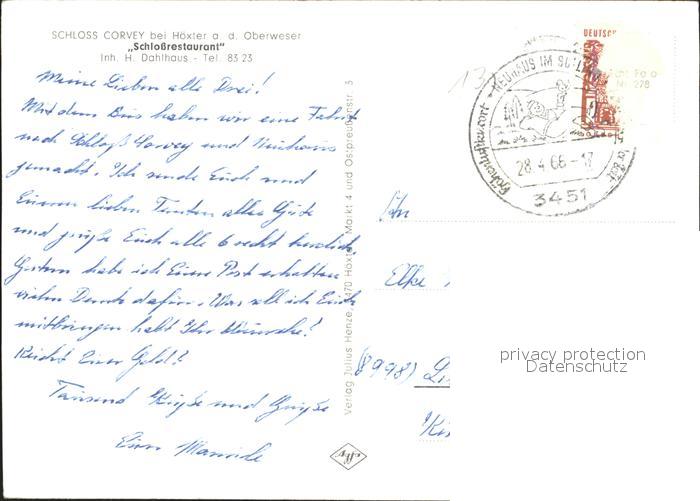 SCHLOSS CORVEY bei Höxter a. d. Oberweser
„Schloßrestaurant"
Inh. H. Dahlhaus - Tel. 83 23
Meine Lieben alle Drei!
Mit dem Bus haben wir eine Fahrt
nach Schloß Corvey und Neuhaus
gemacht. Ich sende Euch und
Eueren lieben Tanten alles Gute
und grüße Euch alle 6 recht herzlich.
Gestern habe ich Eure Post erhalten
vielen Dank dafür. Was soll ich Euch
mitbringen habt Ihr Wünsche?
Reicht Euer Geld?
Tausend Küße und Grüße
Eure
Verlag Julius Henze, 3470 Höxter, Markt 4 und Ostpreußenstr. 3
13
DEUTSC
NEUHAUS IM SOLLING
Höhenluftkurort
28.4.66-17
3451
Elke
(8998)
privacy protection
Datenschutz